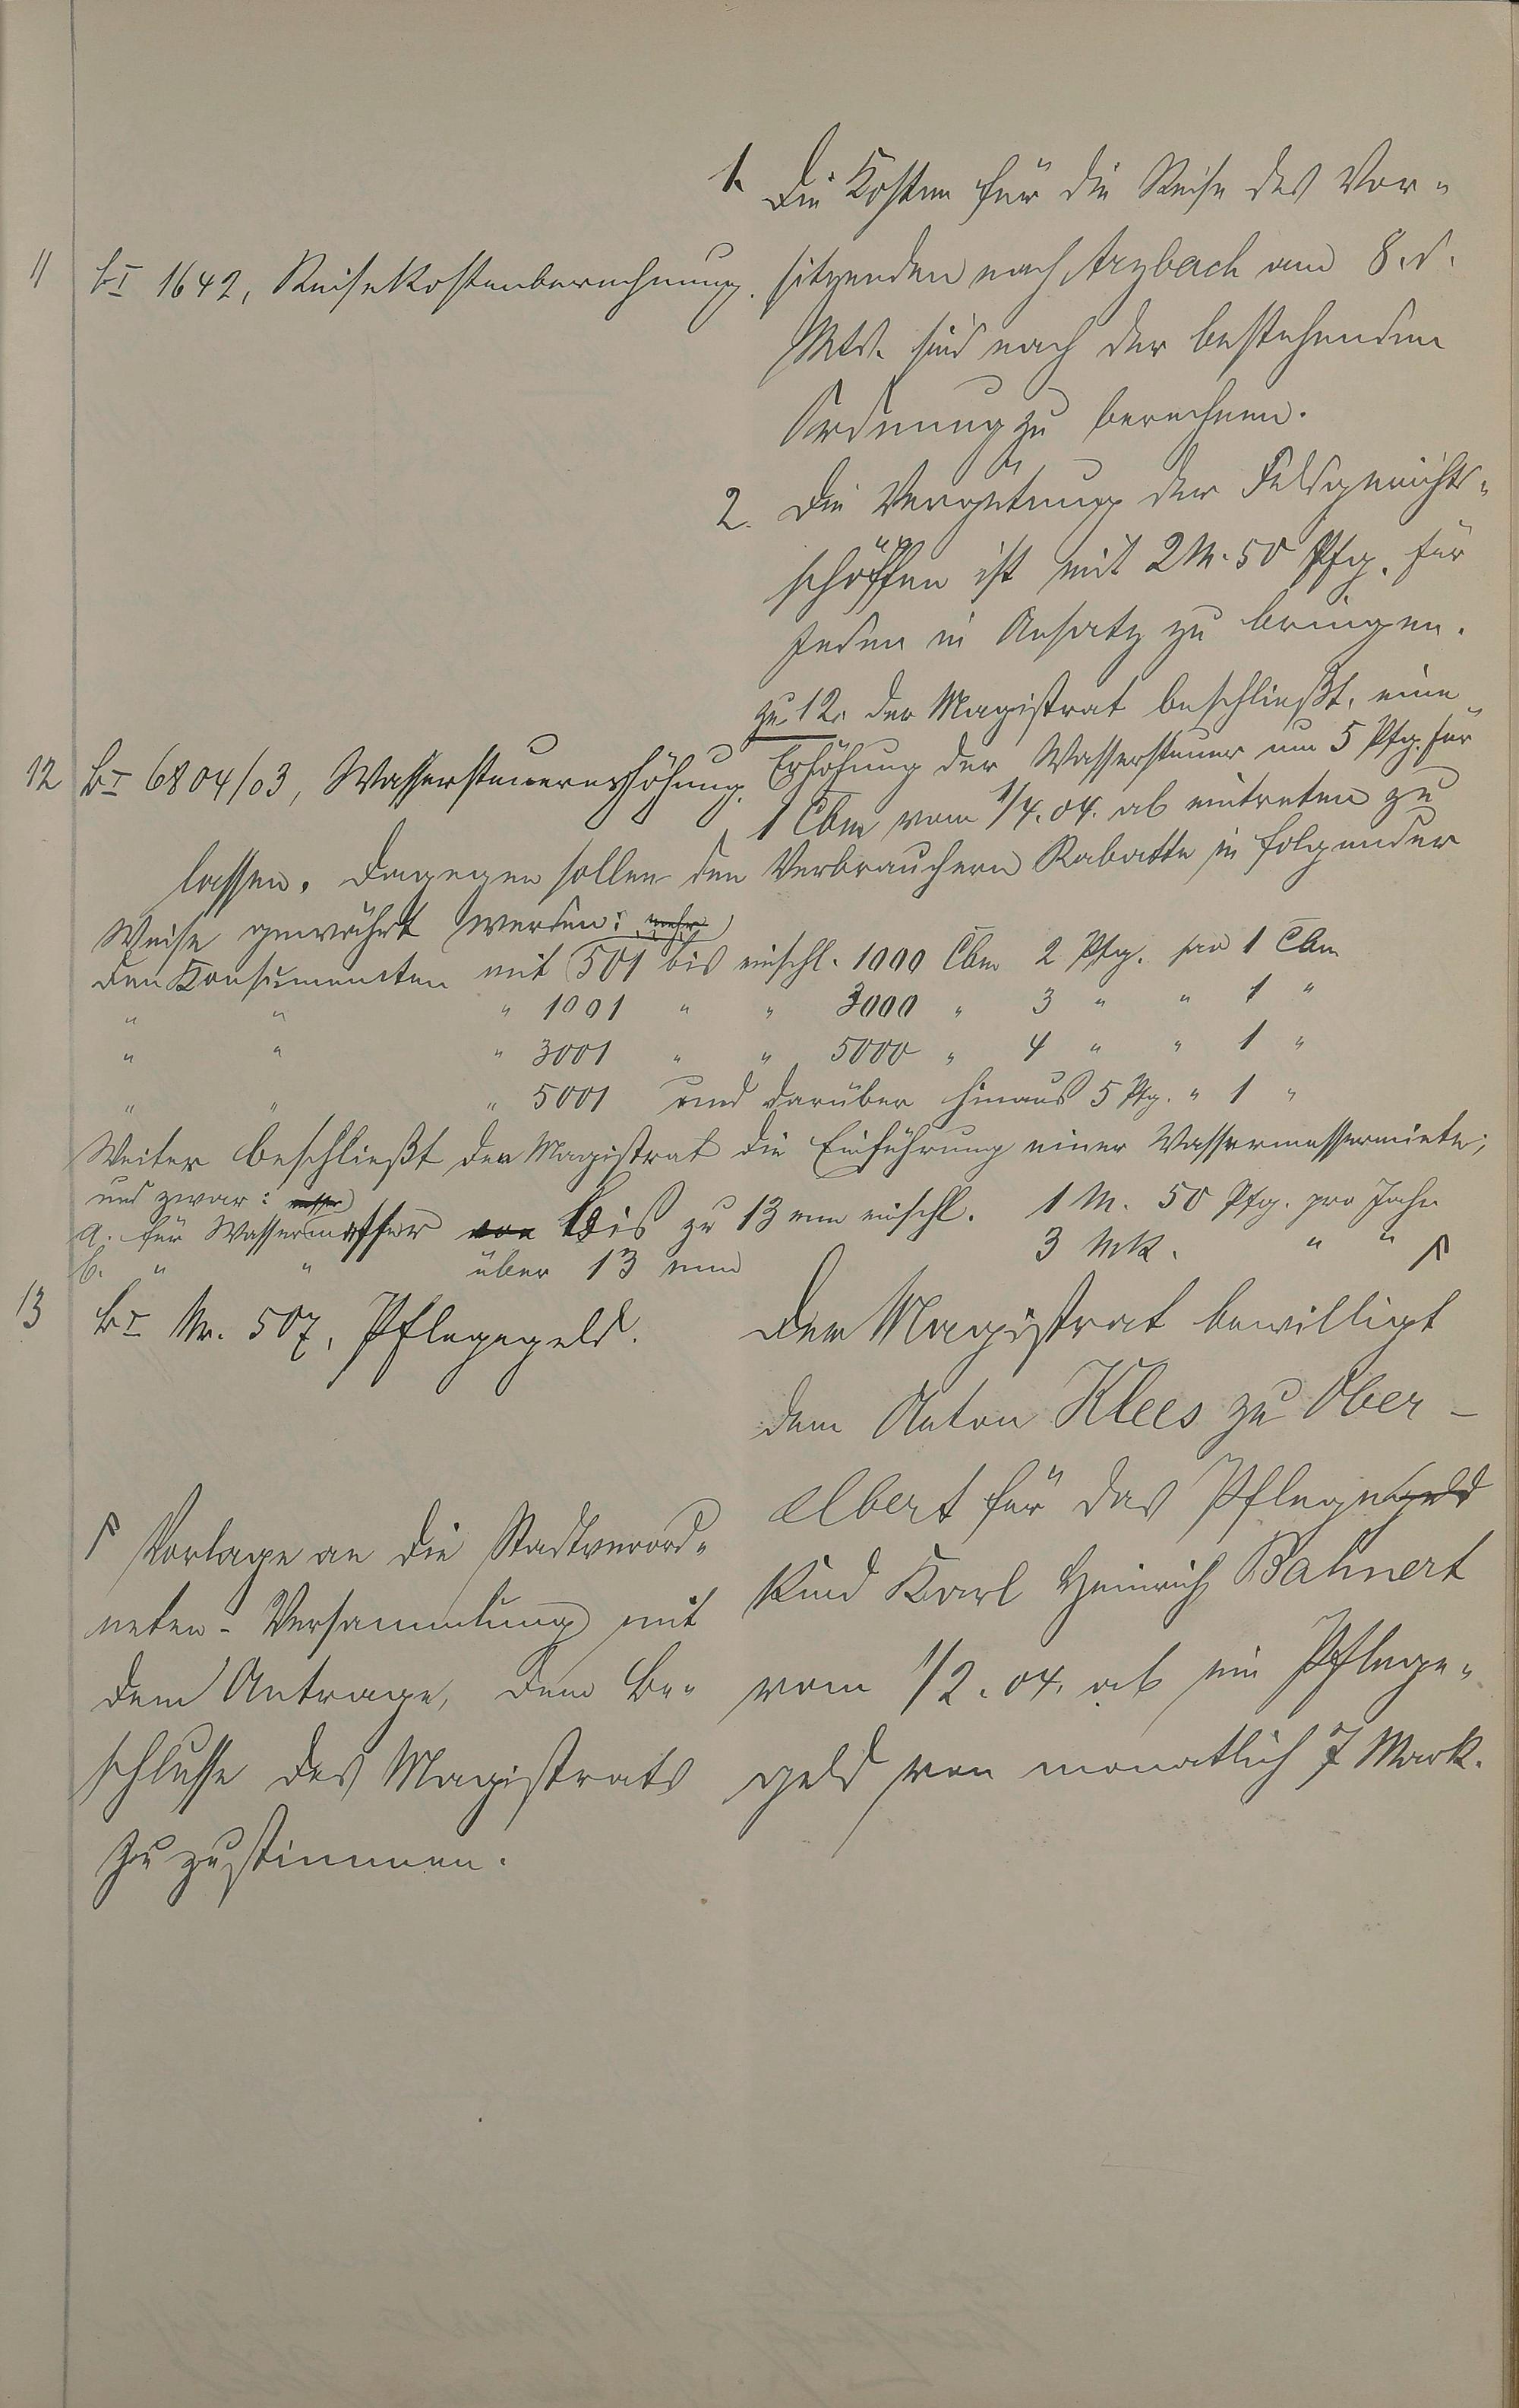 11
bI 1642, Reisekostenberechnung.
1. Die Kosten für die Reise des Vor-
sitzenden nach Arzbach am 8. d.
Mts. sind nach der bestehenden
Ordnung zu berechnen.
2. Die Vergütung der Feldgerichts-
schöffen ist mit 2 M. 50 Pfg. für
Jeden in Ansatz zu bringen.
12
bI 6804/03, Wassersteuererhöhung.
zu 12. Der Magistrat beschließt, eine
Erhöhung der Wassersteuer um 5 Pfg. für
1 Cbm vom 1/4. 04. ab eintreten zu
lassen. Dagegen sollen den Verbrauchern Rabatte in folgender
Weise gewährt werden: mehr
den Konsumenten mit 501 bis einschl. 1000 Cbm 2 Pfg. pro 1 Cbm
" " " 1001 " " 3000 " 3 " " 1 "
" " " 3001 " " 5000 " 4 " " 1 "
" " " 5001 und darüber hinaus 5 Pfg. " 1 "
Weiter beschließt der Magistrat die Einführung einer Wassermessermiete;
und zwar: messer
a. für Wassermesser von bis zu 13 mm einschl. 1 M. 50 Pfg. pro Jahr
b. " " über 13 mm 3 Mk. " "
13
bI Nr. 507, Pflegegeld.
Der Magistrat bewilligt
dem Anton Klees zu Ober-
elbert für das Pflegegeld
Kind Karl Heinrich Bahnert
vom 1/2. 04. ab ein Pflege-
geld von monatlich 7 Mark.
Vorlage an die Stadtverord-
neten-Versammlung mit
dem Antrage, dem Be-
schlusse des Magistrats
zuzustimmen.